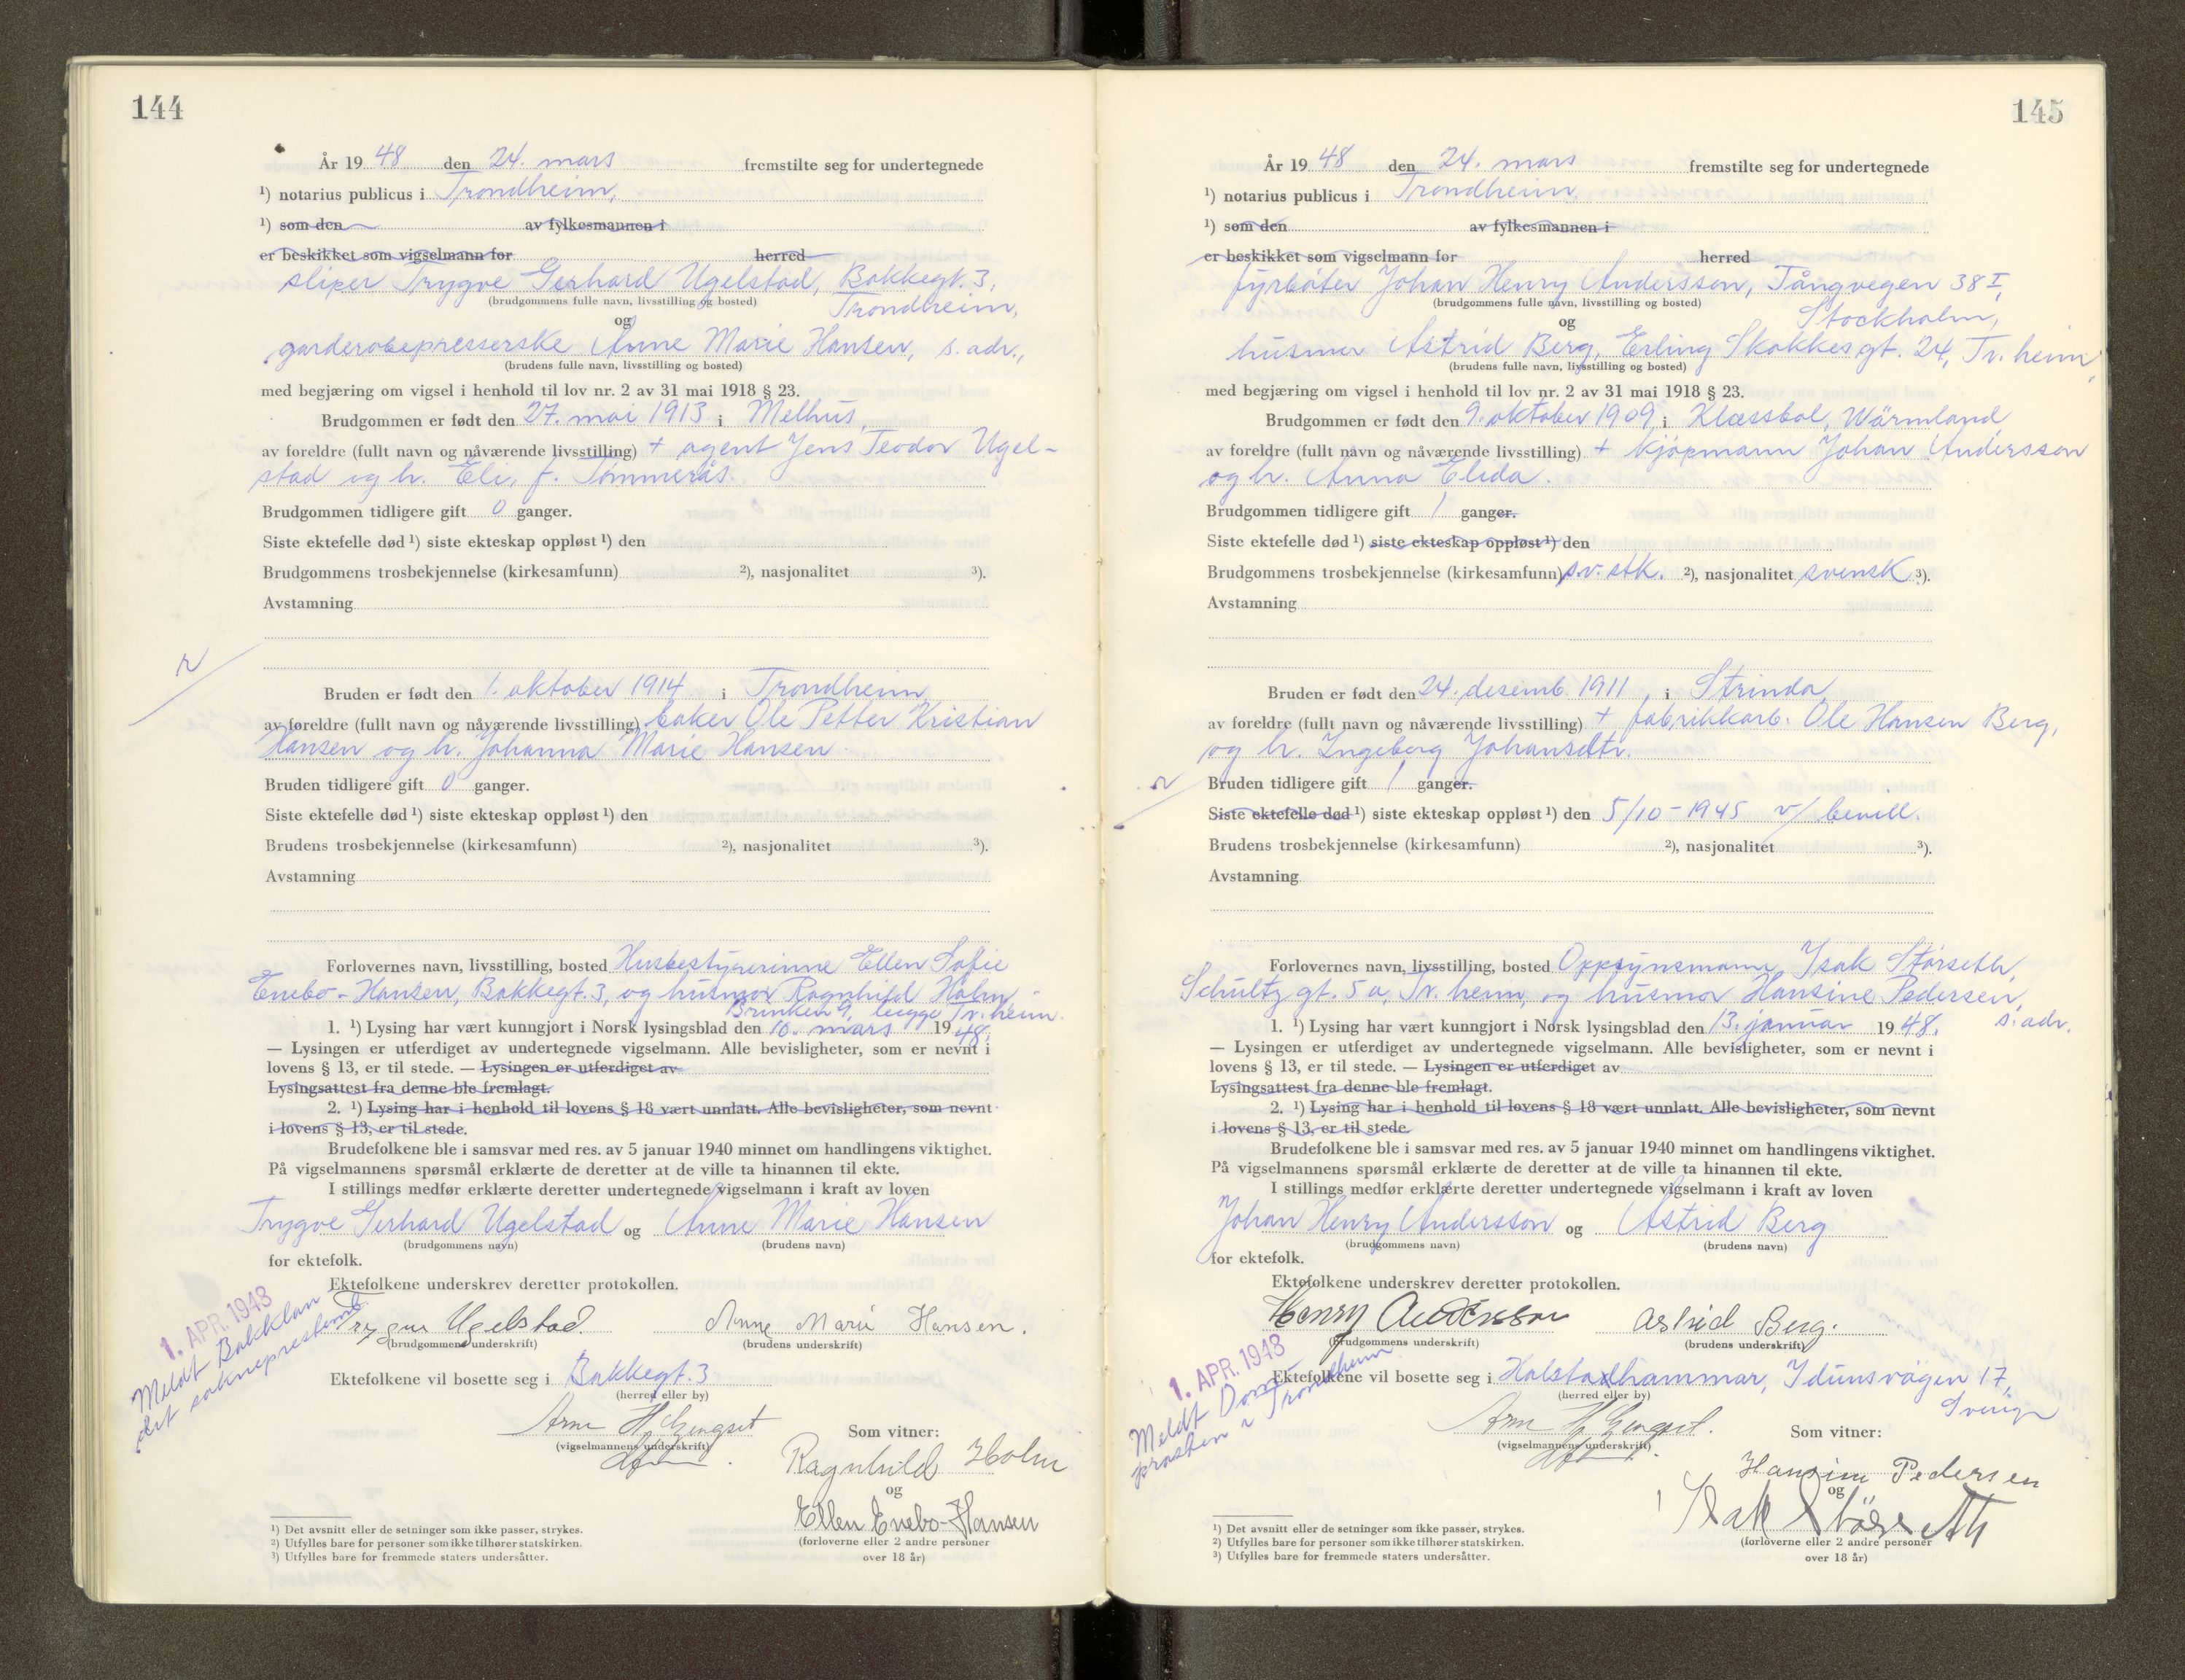 144
År 1948 den 24. mars fremstilte seg for undertegnede
¹) notarius publicus i Trondheim,
¹) som den av fylkesmannen i
er beskikket som vigselmann for herred
sliper Trygve Gerhard Ugelstad, Bakkegt. 3,
(brudgommens fulle navn, livsstilling og bosted)
Trondheim,
og
garderobepresserske Anne Marie Hansen, s. adr.,
(brudens fulle navn, livsstilling og bosted)
med begjæring om vigsel i henhold til lov nr. 2 av 31 mai 1918 § 23.
Brudgommen er født den 27. mai 1913 i Melhus,
av foreldre (fullt navn og nåværende livsstilling) + agent Jens Teodor Ugel-
stad og h. Eli, f. Tømmerås.
Brudgommen tidligere gift 0 ganger.
Siste ektefelle død ¹) siste ekteskap oppløst ¹) den
Brudgommens trosbekjennelse (kirkesamfunn) ²), nasjonalitet ³).
Avstamning
Bruden er født den 1. oktober 1914 i Trondheim,
av foreldre (fullt navn og nåværende livsstilling) baker Ole Petter Kristian
Hansen og h. Johanna Marie Hansen.
Bruden tidligere gift 0 ganger.
Siste ektefelle død ¹) siste ekteskap oppløst ¹) den
Brudens trosbekjennelse (kirkesamfunn) ²), nasjonalitet ³).
Avstamning
Forlovernes navn, livsstilling, bosted Husbestyrerinne Ellen Sofie
Enebo-Hansen, Bakkegt. 3, og husmor Ragnhild Holm,
Brinken 9, begge Tr.heim.
1. ¹) Lysing har vært kunngjort i Norsk lysingsblad den 16. mars 1948.
— Lysingen er utferdiget av undertegnede vigselmann. Alle bevisligheter, som er nevnt i
lovens § 13, er til stede. — Lysingen er utferdiget av
Lysingsattest fra denne ble fremlagt.
2. ¹) Lysing har i henhold til lovens § 18 vært unnlatt. Alle bevisligheter, som nevnt
i lovens § 13, er til stede.
Brudefolkene ble i samsvar med res. av 5 januar 1940 minnet om handlingens viktighet.
På vigselmannens spørsmål erklærte de deretter at de ville ta hinannen til ekte.
I stillings medfør erklærte deretter undertegnede vigselmann i kraft av loven
Trygve Gerhard Ugelstad og Anne Marie Hansen
(brudgommens navn) (brudens navn)
for ektefolk.
Ektefolkene underskrev deretter protokollen.
Trygve Ugelstad. Anne Marie Hansen.
(brudgommens underskrift) (brudens underskrift)
1. APR. 1948
Meldt Bakklan
det sokneprestemb
Ektefolkene vil bosette seg i Bakkegt. 3
(herred eller by)
(vigselmannens underskrift)
Som vitner:
Ragnhild Holm
og
Ellen Enebo-Hansen
(forloverne eller 2 andre personer
over 18 år)
¹) Det avsnitt eller de setninger som ikke passer, strykes.
²) Utfylles bare for personer som ikke tilhører statskirken.
³) Utfylles bare for fremmede staters undersåtter.
145
År 1948 den 24. mars fremstilte seg for undertegnede
¹) notarius publicus i Trondheim,
¹) som den av fylkesmannen i
er beskikket som vigselmann for herred
fyrbøter Johan Henry Andersson, Tångvegen 38 I,
(brudgommens fulle navn, livsstilling og bosted)
Stockholm,
og
husmor Astrid Berg, Erling Skakkesgt. 24, Tr. heim,
(brudens fulle navn, livsstilling og bosted)
med begjæring om vigsel i henhold til lov nr. 2 av 31 mai 1918 § 23.
Brudgommen er født den 9. oktober 1909, i Klæssbol, Wärmland
av foreldre (fullt navn og nåværende livsstilling) + kjøpmann Johan Andersson
og h. Anna Elida.
Brudgommen tidligere gift 1 ganger.
Siste ektefelle død ¹) siste ekteskap oppløst ¹) den
Brudgommens trosbekjennelse (kirkesamfunn) sv. stk. ²), nasjonalitet svensk ³).
Avstamning
Bruden er født den 24. desemb. 1911, i Strinda,
av foreldre (fullt navn og nåværende livsstilling) + fabrikkarb. Ole Hansen Berg,
og h. Ingeberg Johansdtr.
Bruden tidligere gift 1 ganger.
Siste ektefelle død ¹) siste ekteskap oppløst ¹) den 5/10-1945 v/ bevill.
Brudens trosbekjennelse (kirkesamfunn) ²), nasjonalitet ³).
Avstamning
Forlovernes navn, livsstilling, bosted Oppsynsmann Isak Størseth,
Schultz gt. 5 a, Tr. heim, og husmor Hansine Pedersen,
s. adr.
1. ¹) Lysing har vært kunngjort i Norsk lysingsblad den 13. januar 1948.
— Lysingen er utferdiget av undertegnede vigselmann. Alle bevisligheter, som er nevnt i
lovens § 13, er til stede. — Lysingen er utferdiget av
Lysingsattest fra denne ble fremlagt.
2. ¹) Lysing har i henhold til lovens § 18 vært unnlatt. Alle bevisligheter, som nevnt
i lovens § 13, er til stede.
Brudefolkene ble i samsvar med res. av 5 januar 1940 minnet om handlingens viktighet.
På vigselmannens spørsmål erklærte de deretter at de ville ta hinannen til ekte.
I stillings medfør erklærte deretter undertegnede vigselmann i kraft av loven
Johan Henry Andersson og Astrid Berg
(brudgommens navn) (brudens navn)
for ektefolk.
Ektefolkene underskrev deretter protokollen.
Henry Andersson Astrid Berg.
(brudgommens underskrift) (brudens underskrift)
1. APR. 1948
Meldt Dom
prosten i Trondheim
Ektefolkene vil bosette seg i Halstadhammar, Idunsvägen 17,
(herred eller by)
Sverige
(vigselmannens underskrift)
Som vitner:
Hansine Pedersen
og
Isak Størseth
(forloverne eller 2 andre personer
over 18 år)
¹) Det avsnitt eller de setninger som ikke passer, strykes.
²) Utfylles bare for personer som ikke tilhører statskirken.
³) Utfylles bare for fremmede staters undersåtter.